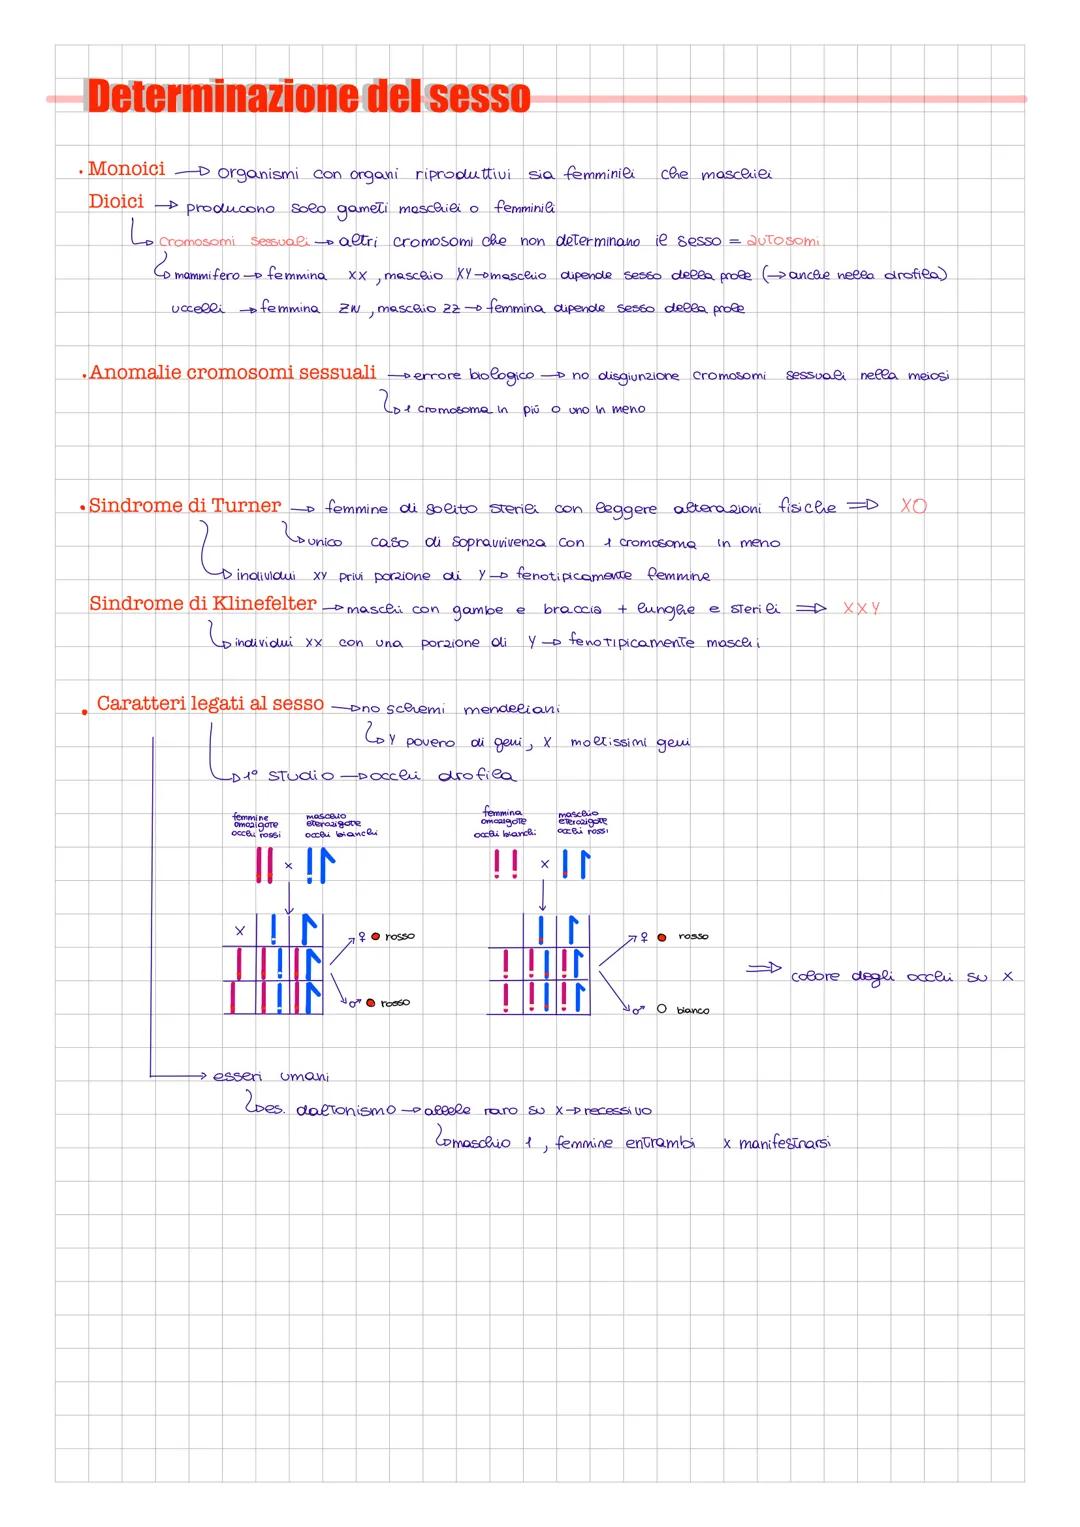 Determinazione del sesso
. Monoici → organismi con organi riproduttivi sia femminili che maschili
Dioici → producono solo gameti maschili o femminili
↳ cromosomi sessuali → altri cromosomi che non determinano il sesso = autosomi
↳ mammifero → femmina XX, maschio XY → maschio dipende sesso della prole (→ anche nella drofila)
uccelli → femmina ZW, maschio ZZ → femmina dipende sesso della prole
. Anomalie cromosomi sessuali → errore biologico → no disgiunzione cromosomi sessuali nella meiosi
↳ 1 cromosoma in più o uno in meno
• Sindrome di Turner → femmine di solito sterili con leggere alterazioni fisiche ⇒ XO
↳ unico caso di sopravvivenza con 1 cromosoma in meno
↳ individui XY privi porzione di Y → fenotipicamente femmine
Sindrome di Klinefelter → maschi con gambe e braccia + lunghe e sterili ⇒ XXY
↳ individui XX con una porzione di Y → fenotipicamente maschi
• Caratteri legati al sesso → no schemi mendeliani
↳ Y povero di geni, X moltissimi geni
↳ 1° studio → occhi drofila
femmine omozigote occhi rossi
maschio eterozigote occhi bianchi
femmina omozigote occhi bianchi
maschio eterozigote occhi rossi
x
x
x
♀ rosso
♂ rosso
♀ rosso
♂ bianco
⇒ colore degli occhi su X
→ esseri umani
↳ es. daltonismo → allele raro su X → recessivo
↳ maschio 1, femmine entrambi x manifestarsi